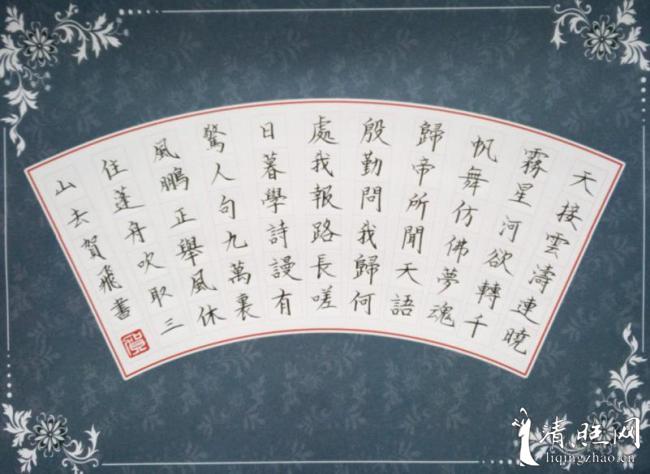 天接雲濤連曉
霧星河欲轉千
帆舞仿佛夢魂
歸帝所聞天語
殷勤問我歸何
處我報路長嗟
日暮學詩謾有
驚人句九萬裏
風鵬正舉風休
住蓬舟吹取三
山去賀飛書
清照网
liqingzhao.cn